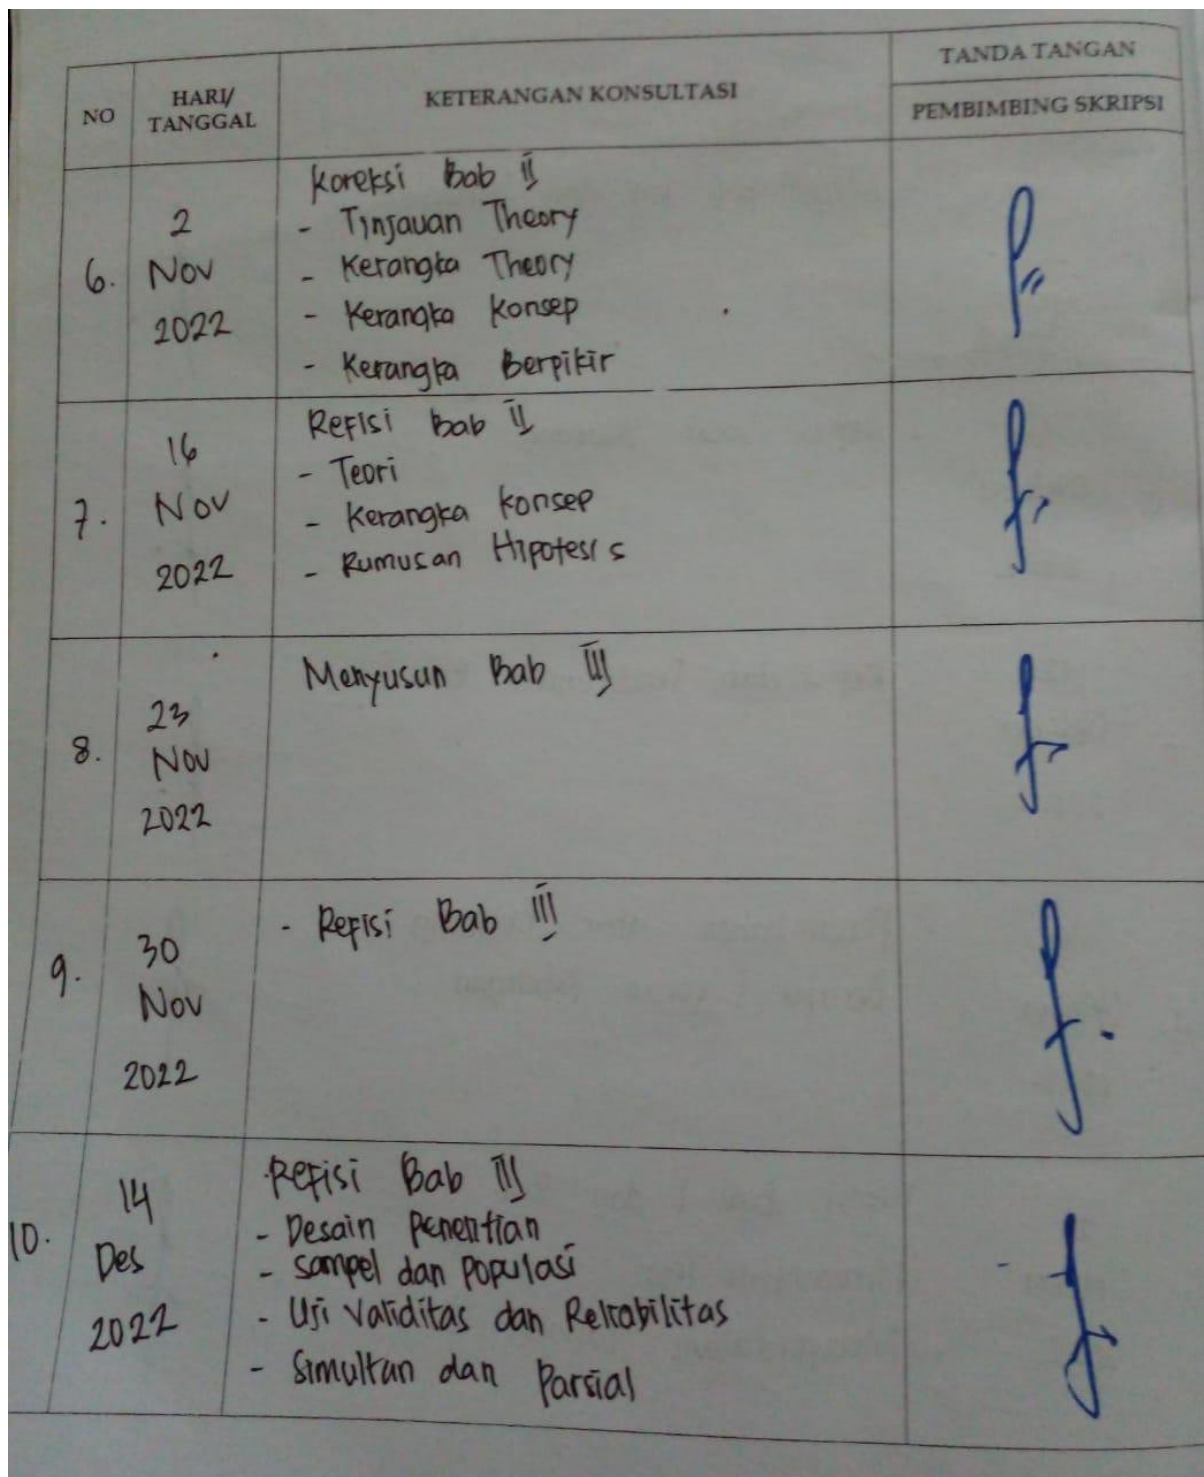 NO
HARI/
TANGGAL
KETERANGAN KONSULTASI
TANDA TANGAN
PEMBIMBING SKRIPSI
6.
2
Nov
2022
Koreksi Bab II
- Tinjauan Theory
- Kerangka Theory
- Kerangka Konsep
- Kerangka Berpikir
7.
16
Nov
2022
Refisi Bab II
- Teori
- Kerangka Konsep
- Rumusan Hipotesis
8.
23
Nov
2022
Menyusun Bab III
9.
30
Nov
2022
- Refisi Bab III
10.
14
Des
2022
Refisi Bab III
- Desain Penelitian
- Sampel dan Populasi
- Uji Validitas dan Reliabilitas
- Simultan dan Parsial